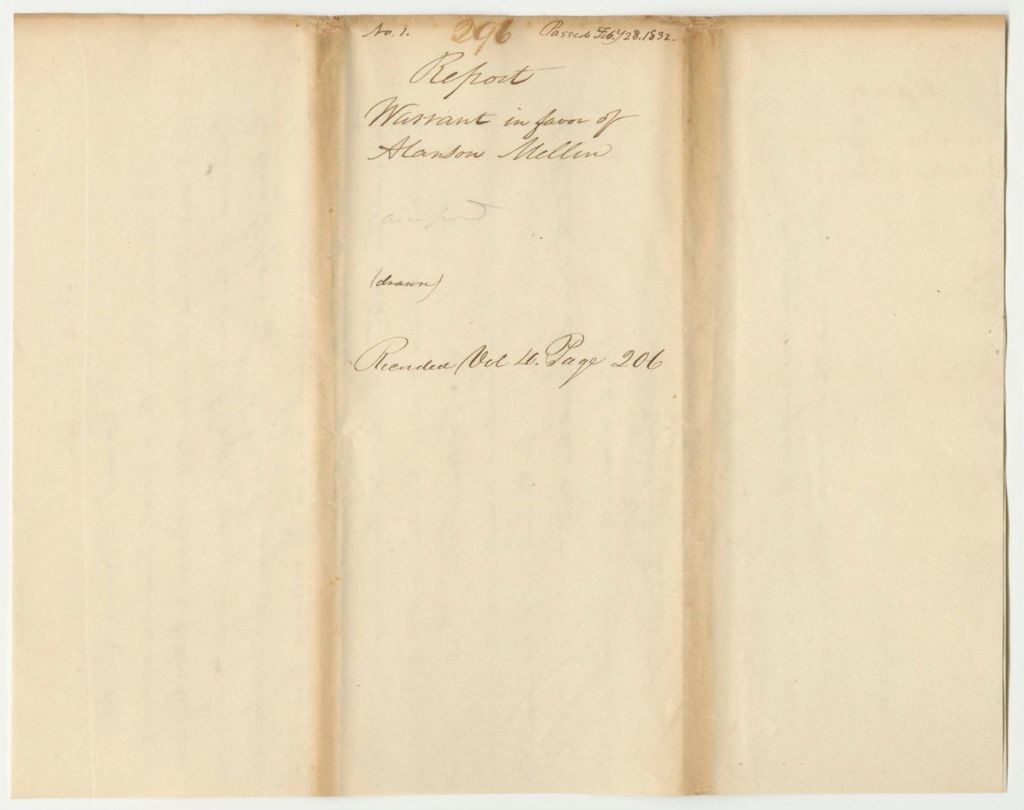 No. 1. 296 Passed Feby 28. 1832.
Report
Warrant in favor of
Alanson Mellen
accepted
(drawn)
Recorded Vol 4. Page 206